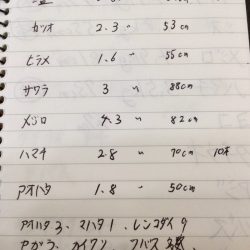 カツオ 2.3 〃 53cm
ヒラメ 1.6 〃 55cm
サワラ 3 〃 88cm
メジロ 4.3 〃 82cm
ハマチ 2.8 〃 70cm 10本
アオハタ 1.8 〃 50cm
アオハタ3、マハタ1、レンコダイ9